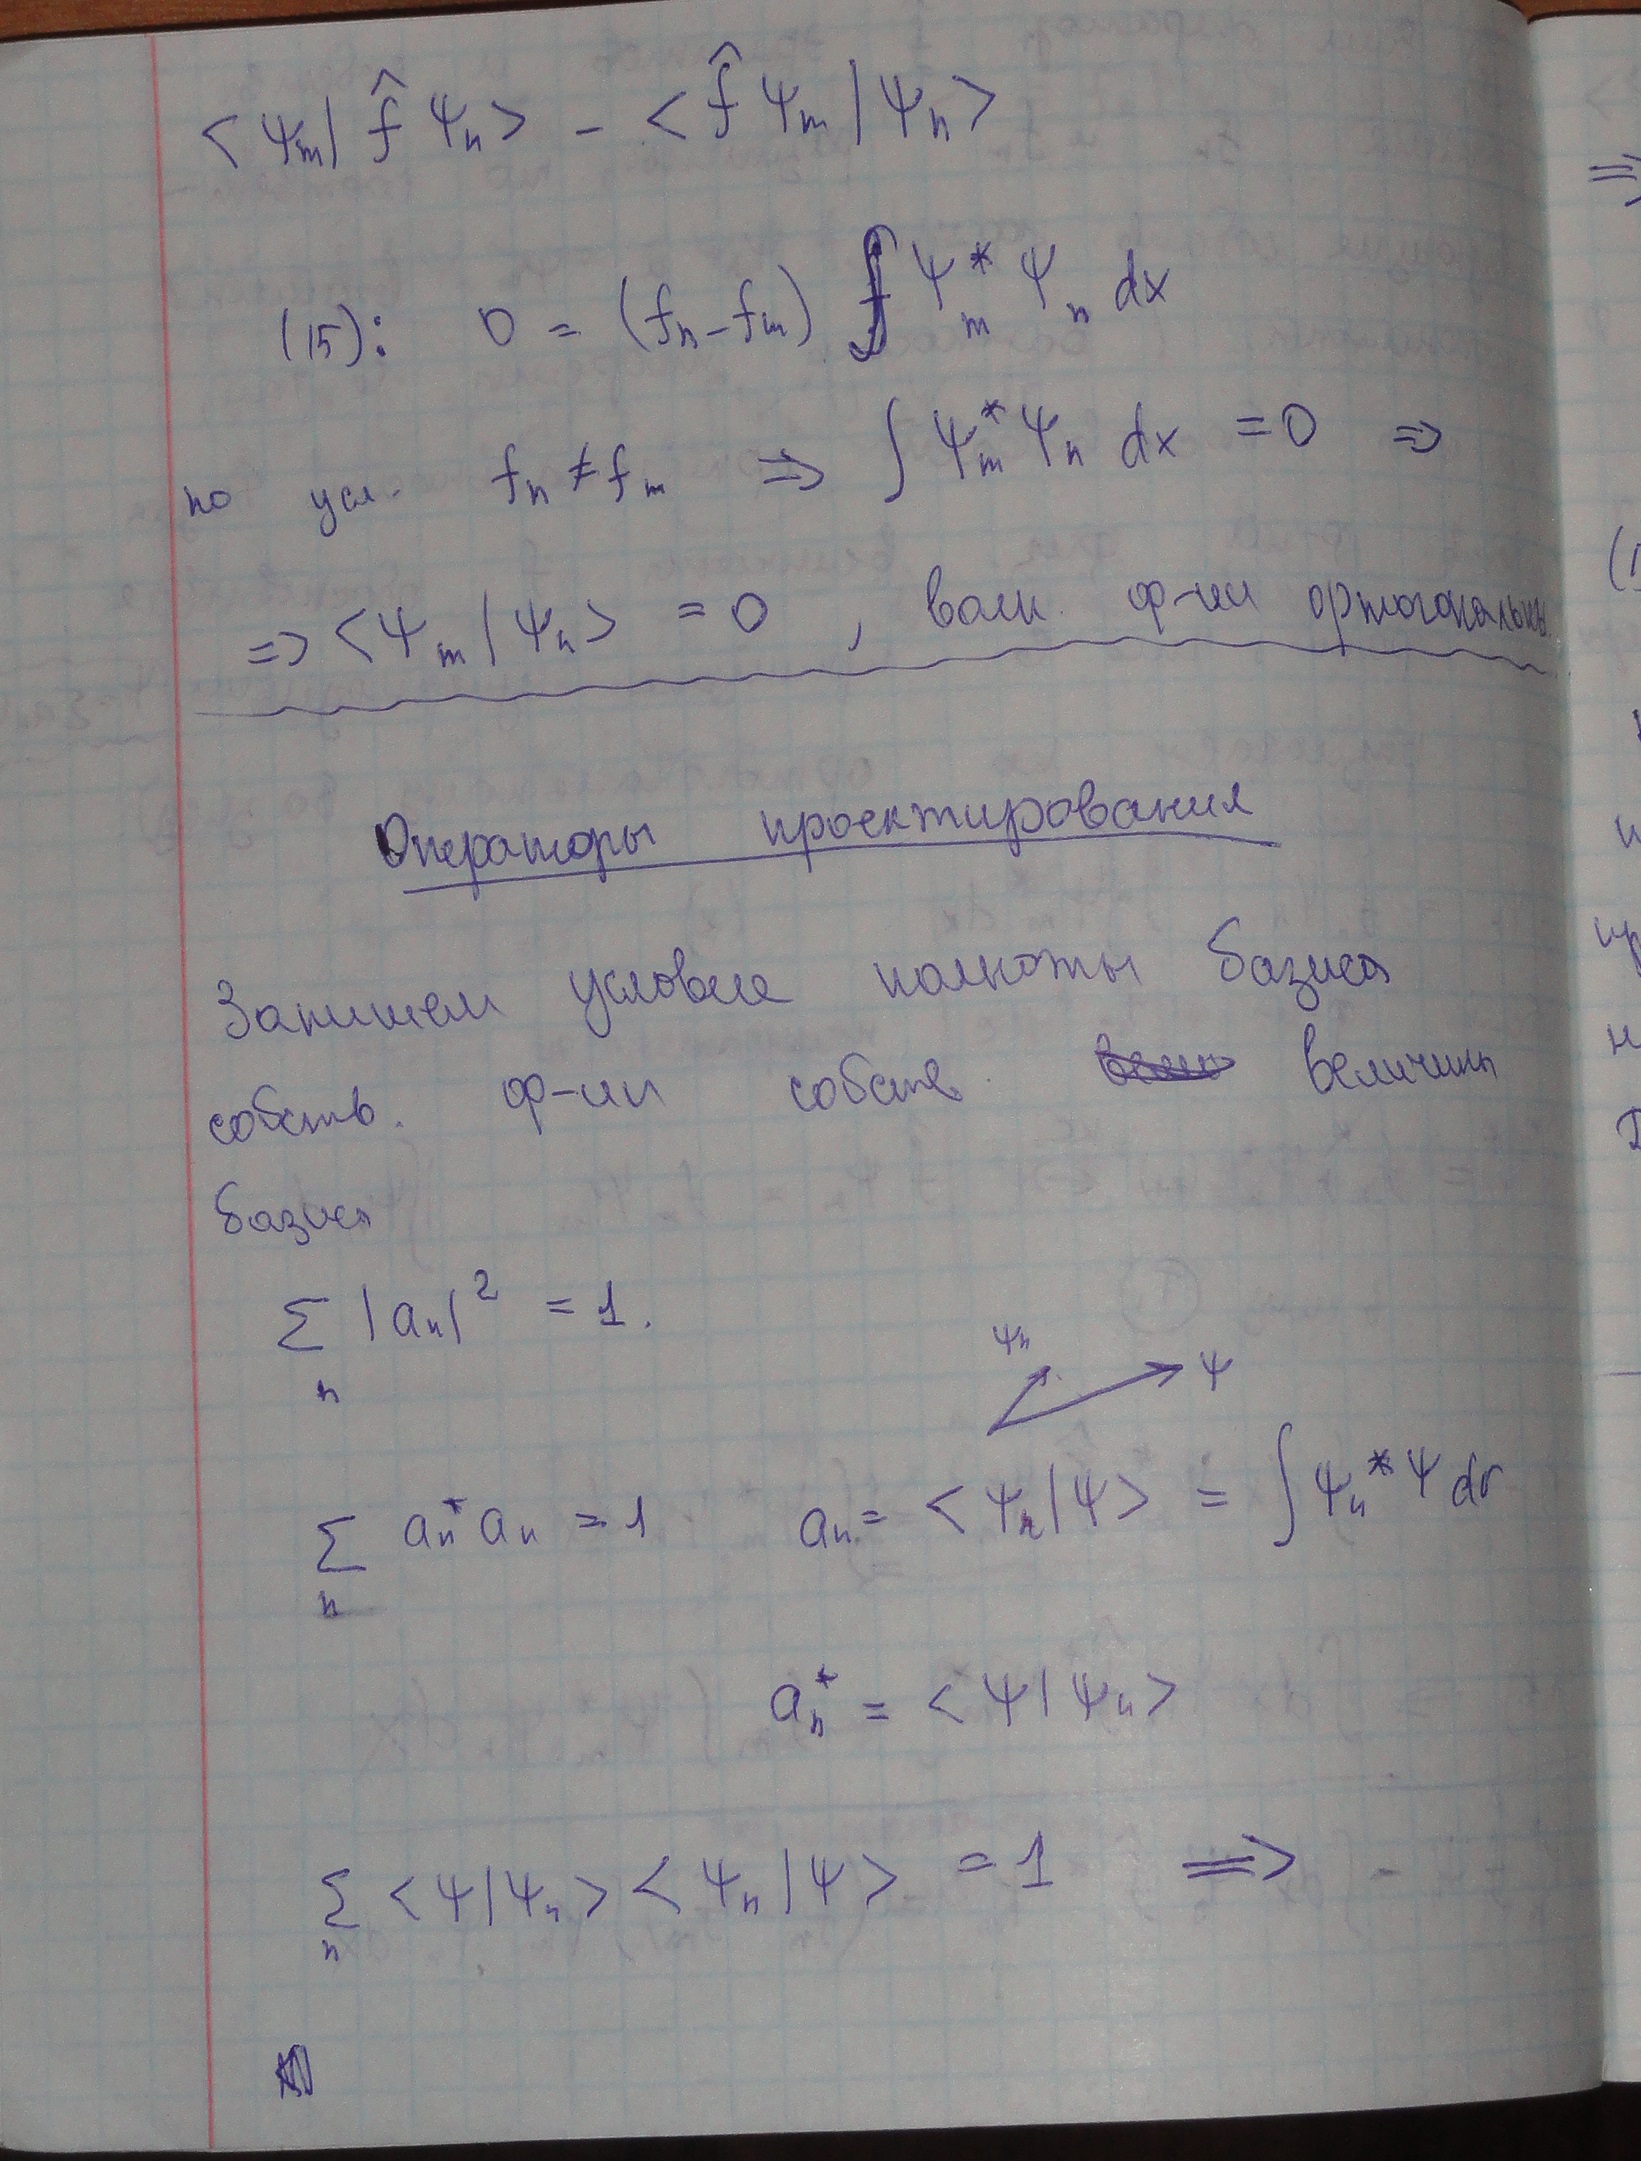 <Ψₘ| f̂ Ψₙ> - <f̂ Ψₘ | Ψₙ>
(15): 0 = (fₙ - fₘ) ∫ Ψₘ* Ψₙ dx
по усл. fₙ ≠ fₘ => ∫ Ψₘ* Ψₙ dx = 0 =>
=> <Ψₘ | Ψₙ> = 0 , волн. ф-ии ортогональны.
Операторы проектирования
Запишем условие полноты базиса
собств. ф-ии собств. величины
базиса
Σₙ |aₙ|² = 1.
Ψₙ Ψ
Σₙ aₙ* aₙ = 1 aₙ = <Ψₙ|Ψ> = ∫ Ψₙ* Ψ dr
aₙ* = <Ψ|Ψₙ>
Σₙ <Ψ|Ψₙ> <Ψₙ|Ψ> = 1 =>